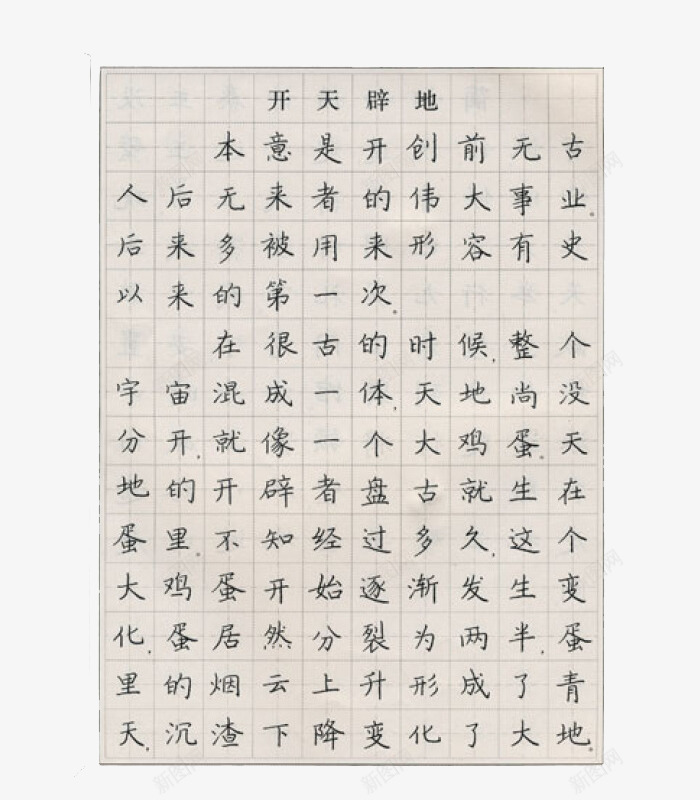 开天辟地
本意是开创前无古
人后无来者的伟大事业。
后来多被用来形容有史
以来的第一次。
在很古的时候,整个
宇宙混成一体,天地尚没
分开,就像一个大鸡蛋。天
地的开辟者盘古就生在
蛋里。不知经过多久,这个
大鸡蛋开始逐渐发生变
化,蛋居然分裂为两半,蛋
里的烟云上升形成了青
天,沉渣下降变化了大地。